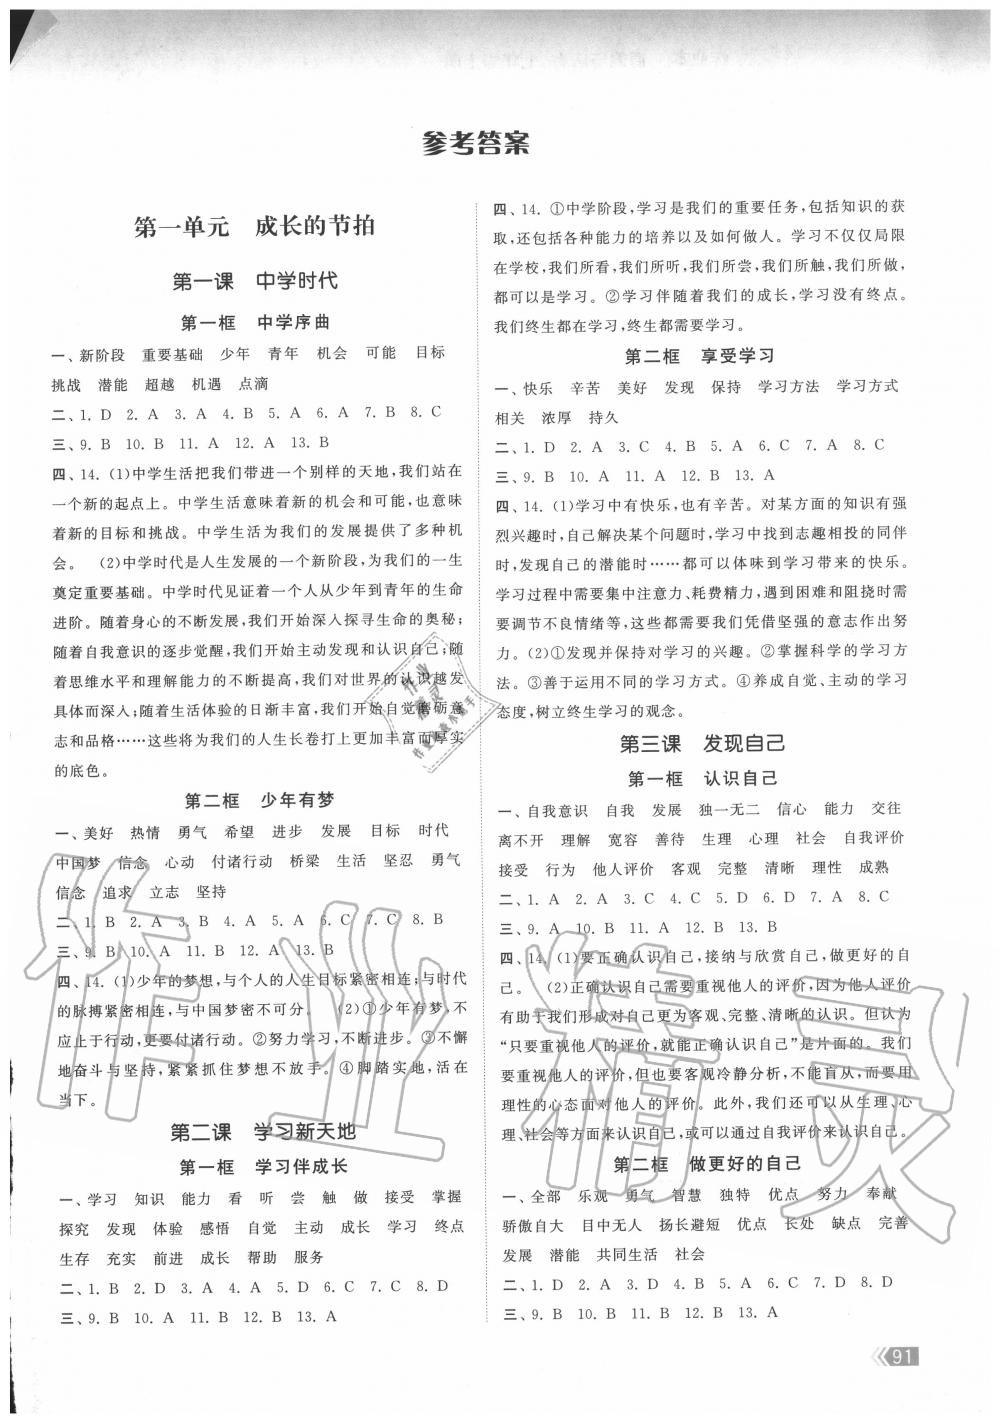 参考答案
第一单元 成长的节拍
第一课 中学时代
第一框 中学序曲
一、新阶段 重要基础 少年 青年 机会 可能 目标
挑战 潜能 超越 机遇 点滴
二、1. D 2. A 3. A 4. B 5. A 6. A 7. B 8. C
三、9. B 10. B 11. A 12. A 13. B
四、14. (1)中学生活把我们带进一个别样的天地,我们站在
一个新的起点上。中学生活意味着新的机会和可能,也意味
着新的目标和挑战。中学生活为我们的发展提供了多种机
会。 (2)中学时代是人生发展的一个新阶段,为我们的一生
奠定重要基础。中学时代见证着一个人从少年到青年的生命
进阶。随着身心的不断发展,我们开始深入探寻生命的奥秘;
随着自我意识的逐步觉醒,我们开始主动发现和认识自己;随
着思维水平和理解能力的不断提高,我们对世界的认识越发
具体而深刻;随着生活体验的日渐丰富,我们开始自觉磨砺意
志和品格……这些将为我们的人生长卷打上更加丰富而厚实
的底色。
第二框 少年有梦
一、美好 热情 勇气 希望 进步 发展 目标 时代
中国梦 信念 心动 付诸行动 桥梁 生活 坚忍 勇气
信念 追求 立志 坚持
二、1. B 2. A 3. B 4. A 5. A 6. C 7. C 8. B
三、9. B 10. A 11. B 12. A 13. B
四、14. (1)少年的梦想,与个人的人生目标紧密相连;与时代
的脉搏紧密相连,与中国梦密不可分。 (2)①少年有梦,不
应止于行动,更要付诸行动。②努力学习,不断进步。③不懈
地奋斗与坚持,紧紧抓住梦想不放手。④脚踏实地,活在
当下。
第二课 学习新天地
第一框 学习伴成长
一、学习 知识 能力 看 听 尝 触 做 接受 掌握
探究 发现 体验 感悟 自觉 主动 成长 学习 终点
生存 充实 前进 成长 帮助 服务
二、1. B 2. D 3. B 4. C 5. A 6. D 7. C 8. D
三、9. B 10. A 11. B 12. B 13. A
四、14. ①中学阶段,学习是我们的重要任务,包括知识的获
取,还包括各种能力的培养以及如何做人。学习不仅仅局限
在学校,我们所看,我们所听,我们所尝,我们所触,我们所做,
都可以是学习。②学习伴随着我们的成长,学习没有终点。
我们终生都在学习,终生都需要学习。
第二框 享受学习
一、快乐 辛苦 美好 发现 保持 学习方法 学习方式
相关 浓厚 持久
二、1. D 2. A 3. C 4. B 5. A 6. C 7. D 8. C
三、9. B 10. A 11. A 12. B 13. A
四、14. (1)学习中有快乐,也有辛苦。对某方面的知识有强
烈兴趣时,自己解决某个问题时,学习中找到志趣相投的同伴
时,发现自己的潜能时……都可以体味到学习带来的快乐。
学习过程中需集中注意力、耗费精力,遇到困难和阻挠时需
要调节不良情绪等,这些都需要我们凭借坚强的意志作出努
力。(2)①发现并保持对学习的兴趣。②掌握科学的学习方
法。③善于运用不同的学习方式。④养成自觉、主动的学习
态度,树立终生学习的观念。
第三课 发现自己
第一框 认识自己
一、自我意识 自我 发展 独一无二 信心 能力 交往
离不开 理解 宽容 善待 生理 心理 社会 自我评价
接受 行为 他人评价 客观 完整 清晰 理性 成熟
二、1. A 2. D 3. B 4. C 5. D 6. D 7. A 8. C
三、9. A 10. B 11. A 12. B 13. B
四、14. (1)要正确认识自己,接纳与欣赏自己,做更好的自
己。 (2)正确认识自己需要重视他人的评价,因为他人评价
有助于我们形成对自己更为客观、完整、清晰的认识。但认为
“只要重视他人的评价,就能正确认识自己”是片面的。我们
要重视他人的评价,但也要客观冷静分析,不能盲从,而要用
理性的心态面对他人的评价。此外,我们还可以从生理、心
理、社会等方面来认识自己,或可以通过自我评价来认识自己。
第二框 做更好的自己
一、全部 乐观 勇气 智慧 独特 优点 努力 奉献
骄傲自大 目中无人 扬长避短 优点 长处 缺点 完善
发展 潜能 共同生活 社会
二、1. D 2. A 3. D 4. B 5. A 6. C 7. D 8. D
三、9. B 10. B 11. B 12. B 13. A
91
作业精灵
作业精灵
作业检查小能手